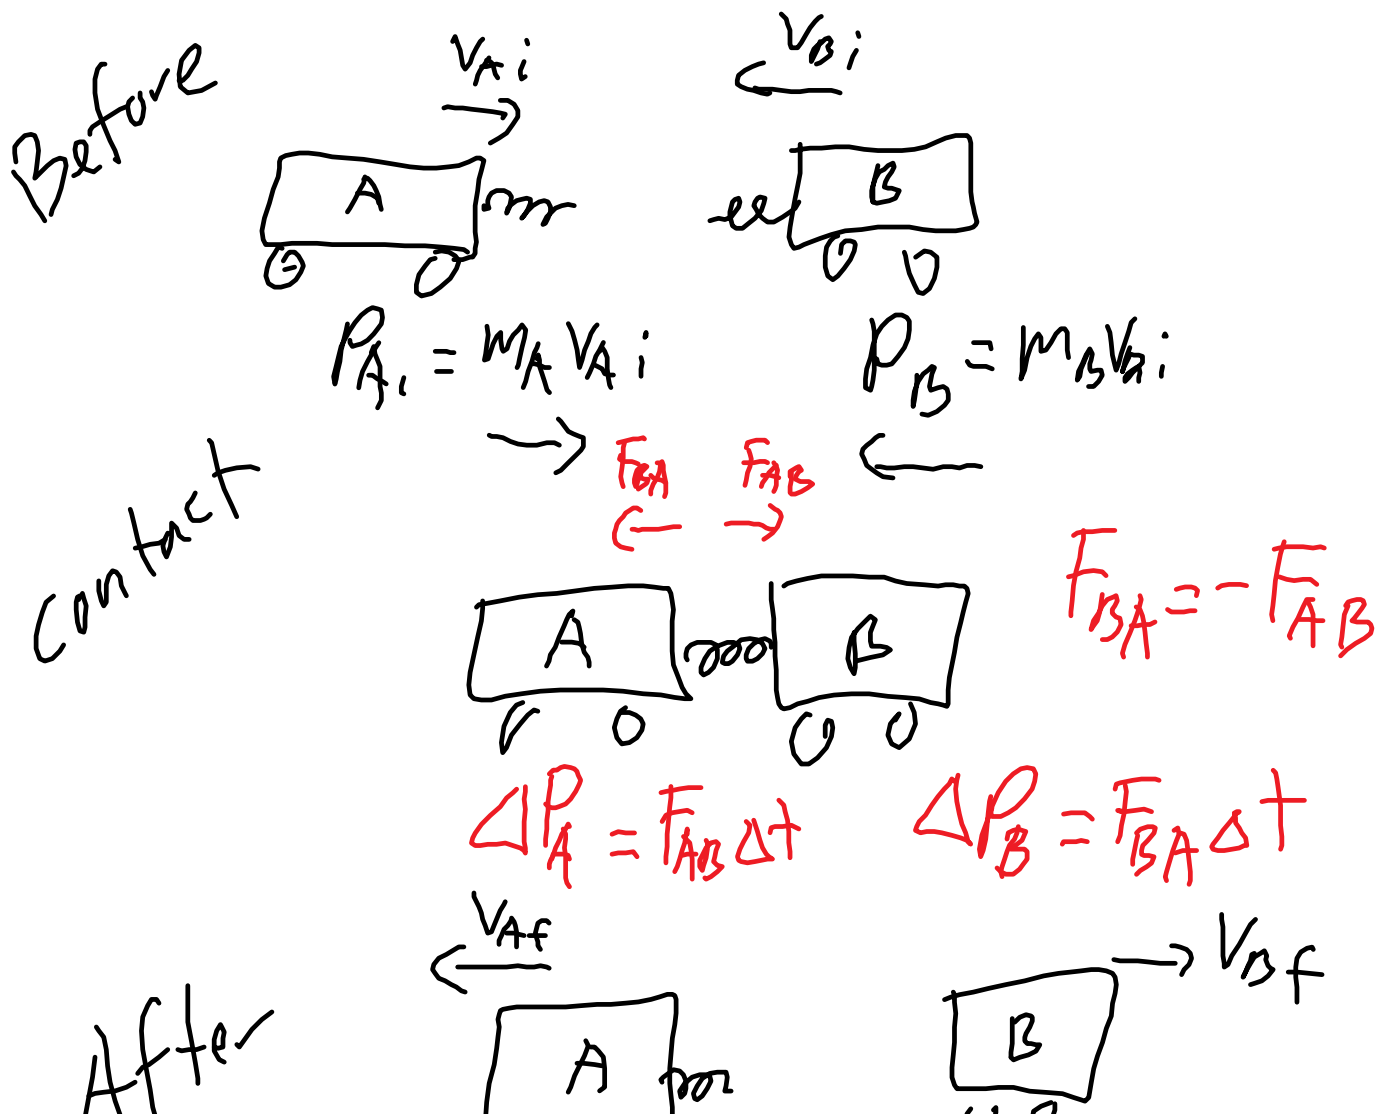 Before
V_Ai V_Bi
A B
P_Ai = m_A V_Ai P_B = m_B V_Bi
Contact
F_BA F_AB
F_BA = - F_AB
A B
ΔP_A = F_AB Δt ΔP_B = F_BA Δt
V_Af V_Bf
After
A B